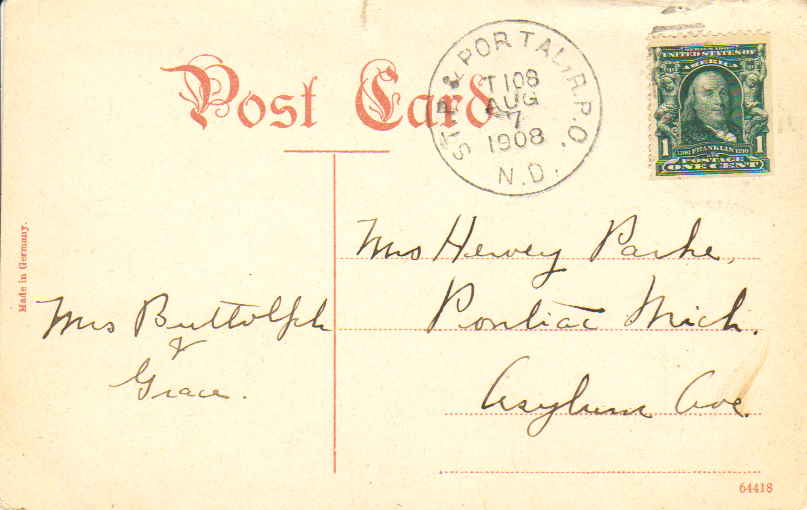 Post Card
ST. P. & PORTAL, R.P.O.
T108
AUG
7
1908
N.D.
SERIES 1902
UNITED STATES OF
AMERICA
1 FRANKLIN 1
POSTAGE
ONE CENT
Made in Germany.
Mrs Hervey Parke,
Pontiac Mich.
Asylum Ave.
Mrs Buttolph
&
Grace.
64418